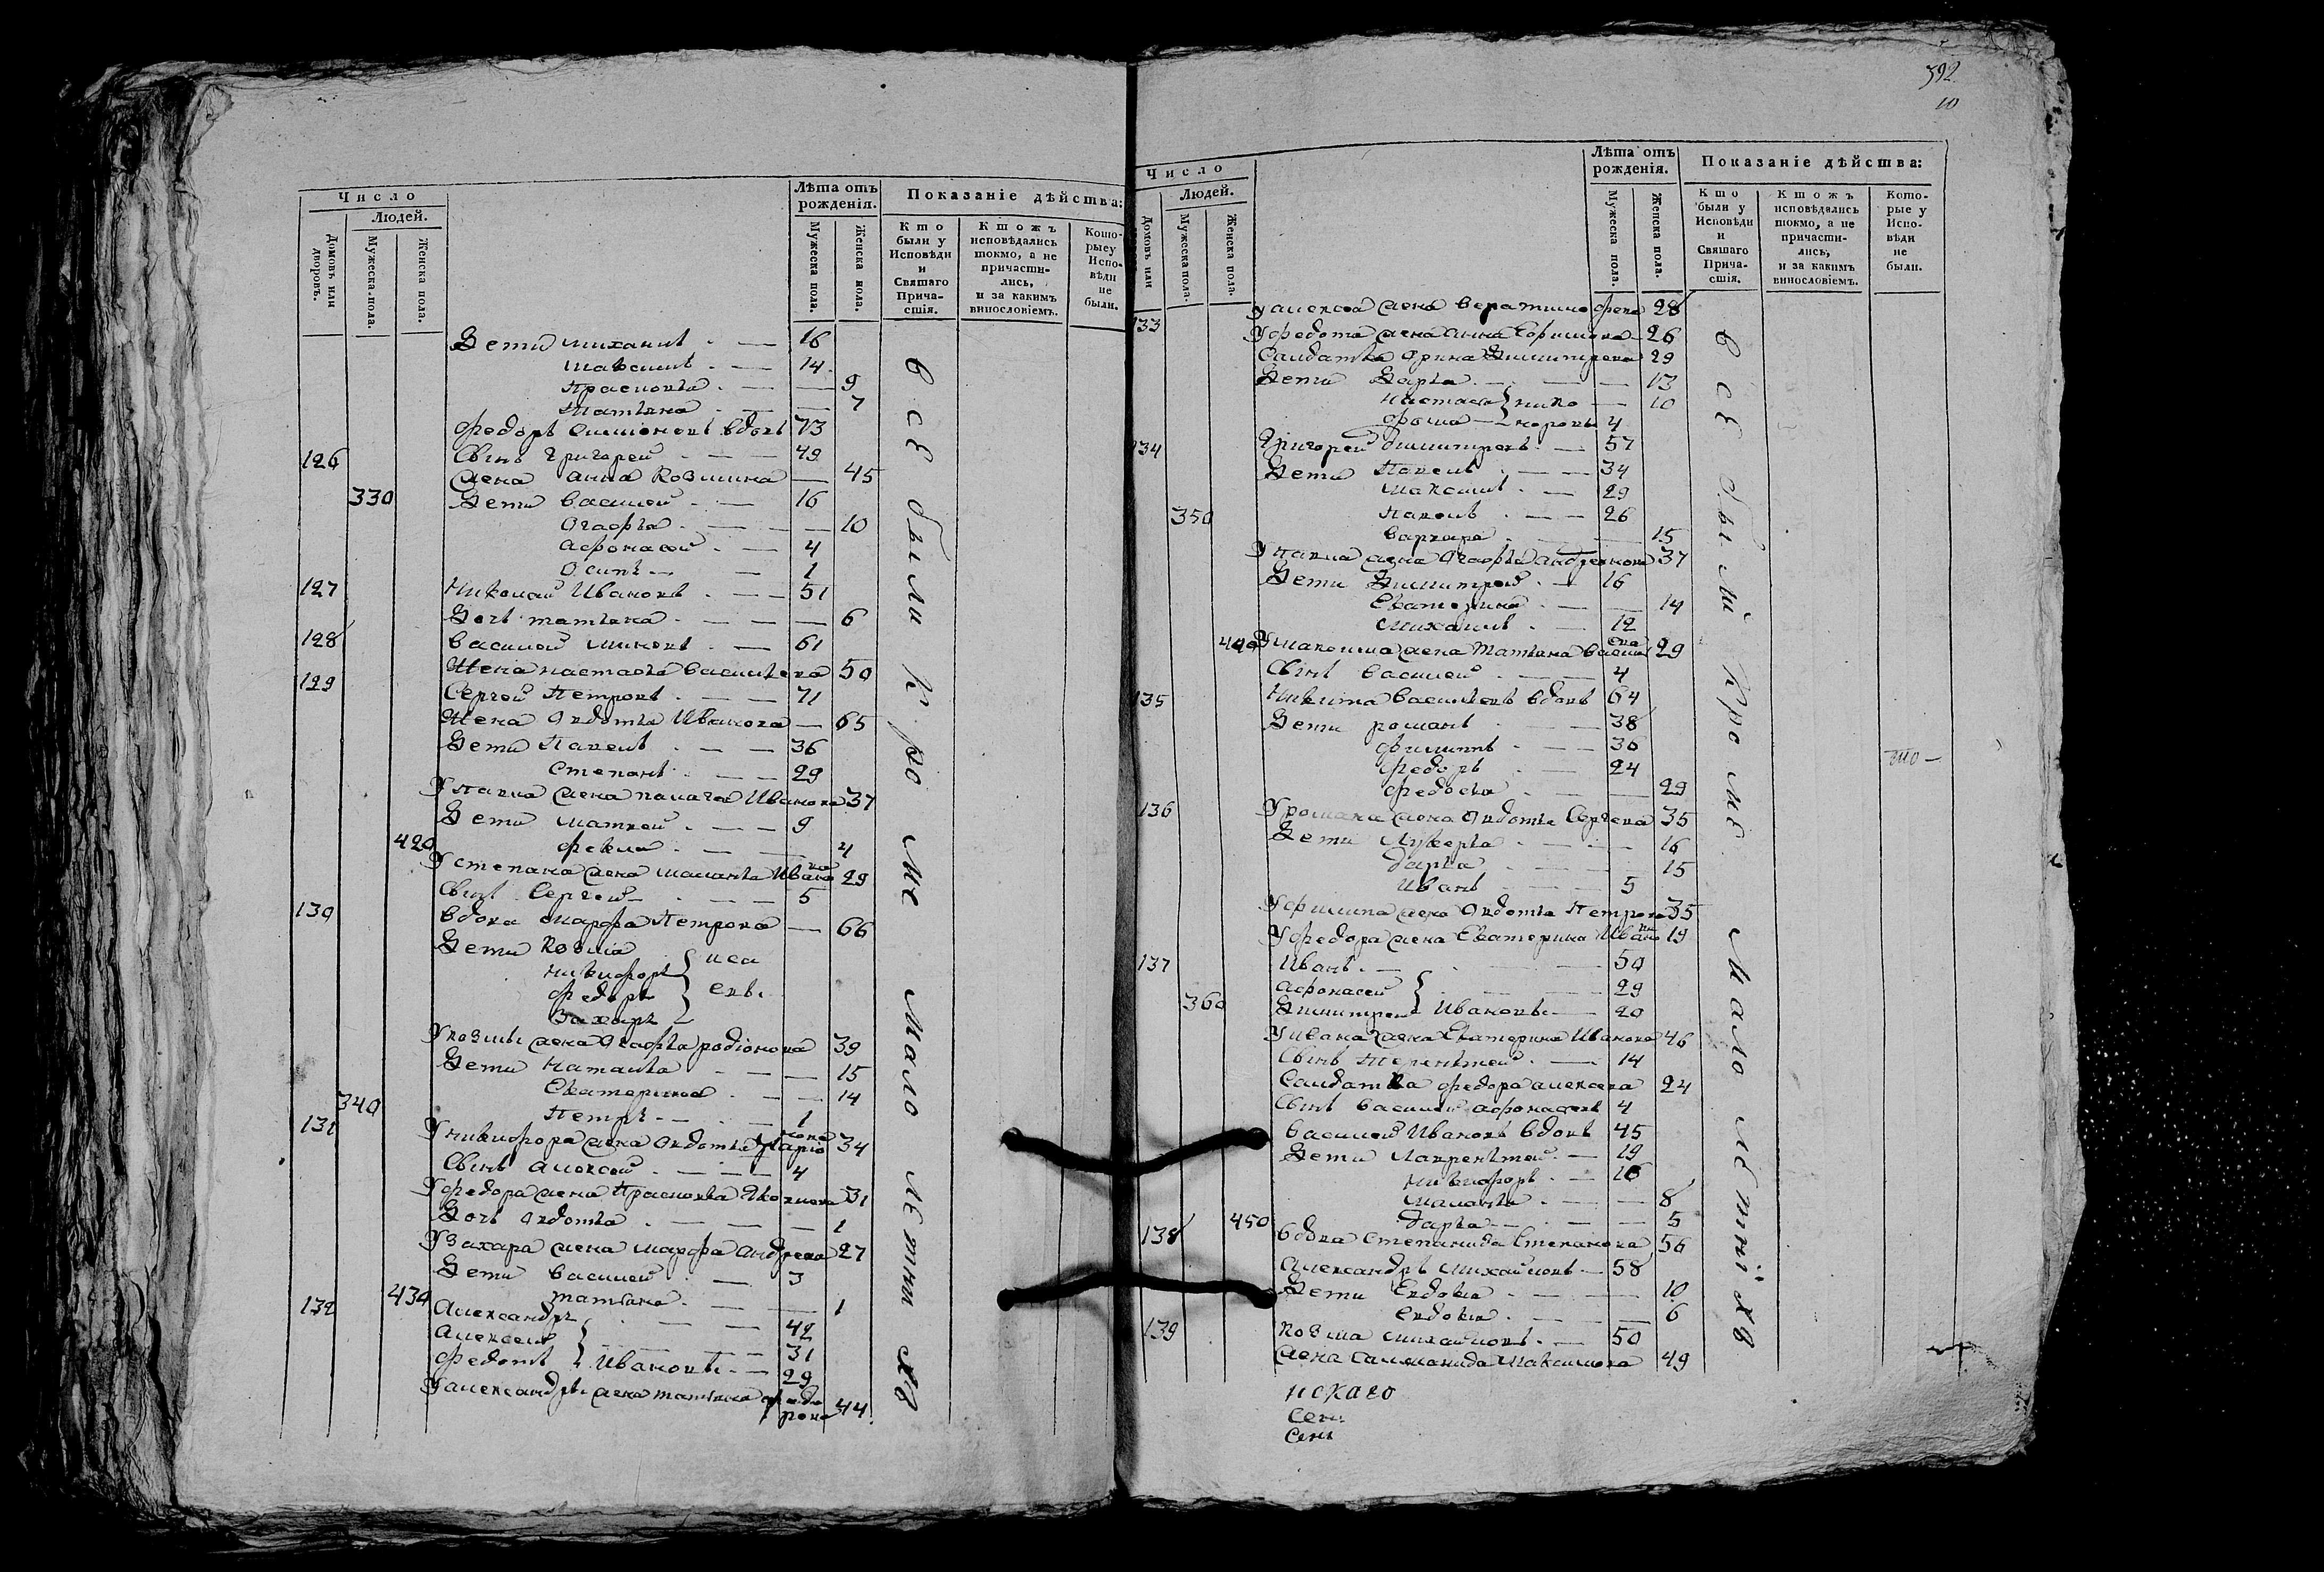 Число
Людей.
Домовъ или дворовъ.
Мужеска пола.
Женска пола.
Лѣта отъ рожденія.
Мужеска пола.
Женска пола.
Показаніе дѣйства:
Кто были у Исповѣди и Святаго Прича-стія.
Ктожъ исповѣдались токмо, а не причасти-лись, и за какимъ винословіемъ.
Кото-рыеу Испо-вѣди не были.
Дети михаилъ 16
Максимъ 14
Прасковья 9
Татьяна 7
Федоръ Симионовъ вдовъ 73
126 Сынъ Григорей 49
жена Анна Козмина 45
330 Дети Василей 16
Огафья 10
Афонасей 4
Осипъ 1
127 Николай Ивановъ 51
Дочь татьяна 6
128 Василей 61
Жена настасья Васильева 50
129 Сергей Петровъ 71
Жена Овдотья Иванова 65
Дети Павелъ 36
Степанъ 29
У Павла жена Иванова 37
Дети Матвей 9
420 Фекла 4
У степана жена маланья Иванова 29
Сынъ Сергей 5
130 Вдова марфа Петрова 66
Дети Козма
Никифоръ
Федоръ
Захаръ
иса
евы
У козмы жена Огафья родіонова 39
Дети Наталья 15
Екатерина 14
340 Петръ 1
131 У никифора жена Овдотья Ларионова 34
Сынъ Алексей 4
У федора жена Прасковья Яковлева 31
Дочь Овдотья 1
У Захара жена марфа Андреева 27
Дети Василей 3
430 татьяна 1
132 Александръ 42
Алексей 31
Федотъ Ивановы 29
У александра жена татьяна федорова 44
всЕ были кроме малолетныхъ
392
10
Число
Людей.
Домовъ или
Мужеска пола.
Женска пола.
Лѣта отъ рожденія.
Мужеска пола.
Женска пола.
Показаніе дѣйства:
Кто были у Исповѣди и Святаго Прича-стія.
Ктожъ исповѣдались токмо, а не причасти-лись, и за какимъ винословіемъ.
Кото-рые у Испо-вѣди не были.
У алексея жена 28
133 У федота жена анна 26
Салдатка Орина Дмитриева 29
Дети Дарья 13
Настасья 10
Фома 4
134 Григорей димитревъ 57
Дети Павелъ 34
Максимъ 29
350 Павелъ 26
Варвара 15
У Павла жена Огафья Андреянова 37
Дети Димитрей 16
Екатерина 14
Михаилъ 12
440 У максима жена Татьяна Васильева 29
Сынъ Василей 4
135 Никита Васильевъ вдовъ 64
Дети романъ 38
филиппъ 36
Федоръ 24
Федосья 29
136 У романа жена Овдотья Сергева 35
Дети Лукерья 16
дарья 15
Иванъ 5
У филипа жена Овдотья Петрова 35
У федора жена Екатерина Иванова 19
137 Иванъ 50
Афонасей 29
360 Димитрей Ивановы 20
У ивана жена Екатерина Иванова 46
Сынъ Терентей 14
Салдатка федора алексева 24
Сынъ Василей афонасевъ 4
Василей Ивановъ вдовъ 45
Дети Лаврентей 19
Никифоръ 16
маланья 8
450 Дарья 5
138 Вдова Степанида Степанова 56
Александръ михайловъ 58
Дети Евдокия 10
Евдокия 6
139 Козма михайловъ 50
жена Саламанида Максимова 49
всЕ были Кроме Малолетнихъ
Сен
Сен